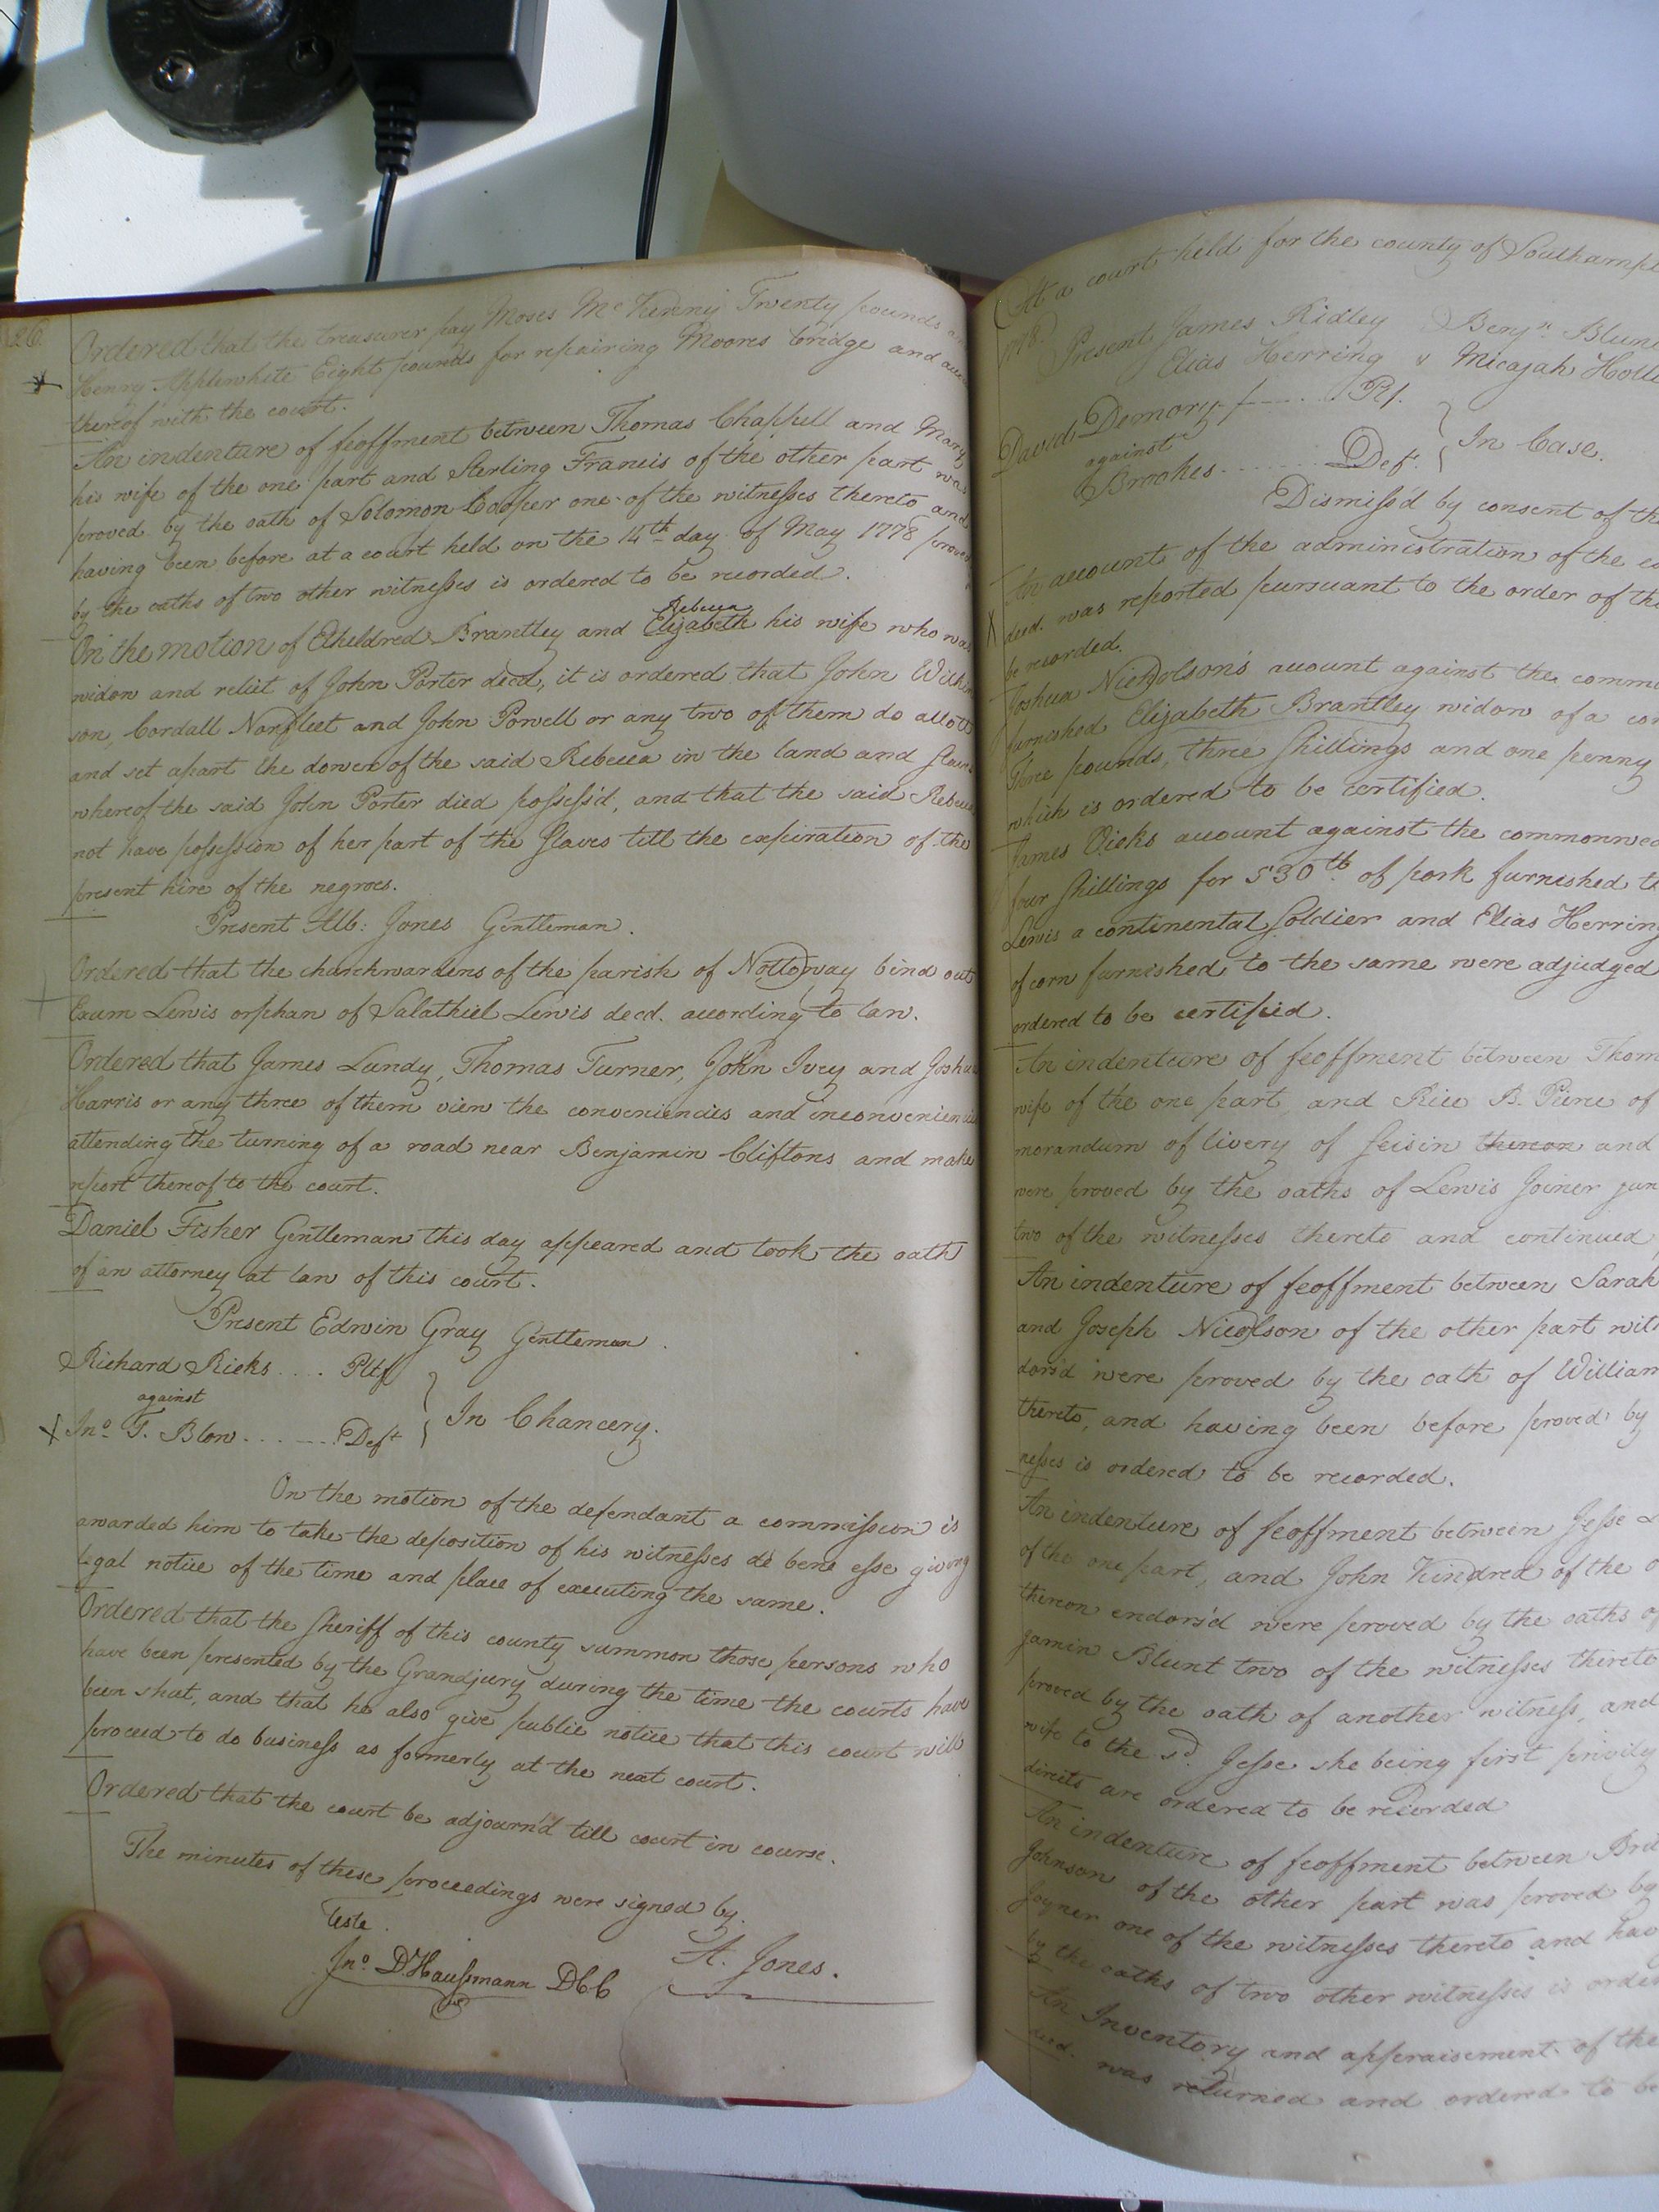 Ordered that the treasurer pay Moses McKenny Twenty pounds
Henry Applewhite Eight pounds for repairing Moores bridge and
thereof with the court.
An indenture of feoffment between Thomas Chappell and Mary
his wife of the one part and Sterling Francis of the other part was
proved by the oath of Solomon Cooper one of the witnesses thereto and
having been before at a court held on the 14th day of May 1778 proved
by the oaths of two other witnesses is ordered to be recorded.
Rebecca
On the motion of Etheldred Brantley and Elizabeth his wife who was
widow and relict of John Porter decd, it is ordered that John Wilkin
son, Cordall Norfleet and John Powell or any two of them do allott
and set apart the dower of the said Rebecca in the land and slaves
whereof the said John Porter died possess'd, and that the said Rebecca
not have possession of her part of the slaves till the expiration of the
present hire of the negroes.
Present Alb: Jones Gentleman.
Ordered that the churchwardens of the parish of Nottoway bind out
Exum Lewis orphan of Salathiel Lewis decd. according to law.
Ordered that James Lundy, Thomas Turner, John Ivey and Joshua
Harris or any three of them view the conveniencies and inconveniencies
attending the turning of a road near Benjamin Cliftons and make
report thereof to the court.
Daniel Fisher Gentleman this day appeared and took the oath
of an attorney at law of this court.
Present Edwin Gray Gentleman.
Richard Ricks .... Pltf
against
In Chancery.
X Jno. T. Blow ....... Deft
On the motion of the defendant a commission is
awarded him to take the deposition of his witnesses de bene esse giving
legal notice of the time and place of executing the same.
Ordered that the Sheriff of this county summon those persons who
have been presented by the Grandjury during the time the courts have
been shut, and that he also give public notice that this court will
proceed to do business as formerly at the next court.
Ordered that the court be adjourn'd till court in course.
The minutes of these proceedings were signed by.
Teste.
A. Jones.
Jno. D. Haussmann DCC
At a court held for the county of Southampt
1778.
Present James Ridley Benjn. Blunt
Elias Herring & Micajah Holl
David Demory ....... Pl.
against
In Case.
Brookes ....... Deft.
Dismiss'd by consent of th
An account of the administration of the es
X decd. was reported pursuant to the order of the
be recorded.
Joshua Nicholson's account against the comm
furnished Elizabeth Brantley widow of a con
Three pounds, three shillings and one penny
which is ordered to be certified.
James Dicks account against the commonwea
four shillings for 530 lb. of pork furnished t
Lewis a continental Soldier and Elias Herring
of corn furnished to the same were adjudged
ordered to be certified.
An indenture of feoffment between Thom
wife of the one part, and Rice B. Pierce of
morandum of livery of seisin thereon and
were proved by the oaths of Lewis Joiner jun
two of the witnesses thereto and continued
An indenture of feoffment between Sarah
and Joseph Nicolson of the other part wit
dors'd were proved by the oath of William
thereto, and having been before proved by
nesses is ordered to be recorded.
An indenture of feoffment between Jesse
of the one part, and John Kindred of the o
thereon endors'd were proved by the oaths of
jamin Blunt two of the witnesses thereto
proved by the oath of another witness, and
wife to the sd. Jesse she being first privily
directs are ordered to be recorded
An indenture of feoffment between Brit
Johnson of the other part was proved by
Joyner one of the witnesses thereto and hav
by the oaths of two other witnesses is order
An Inventory and appraisement of the
decd. was returned and ordered to be